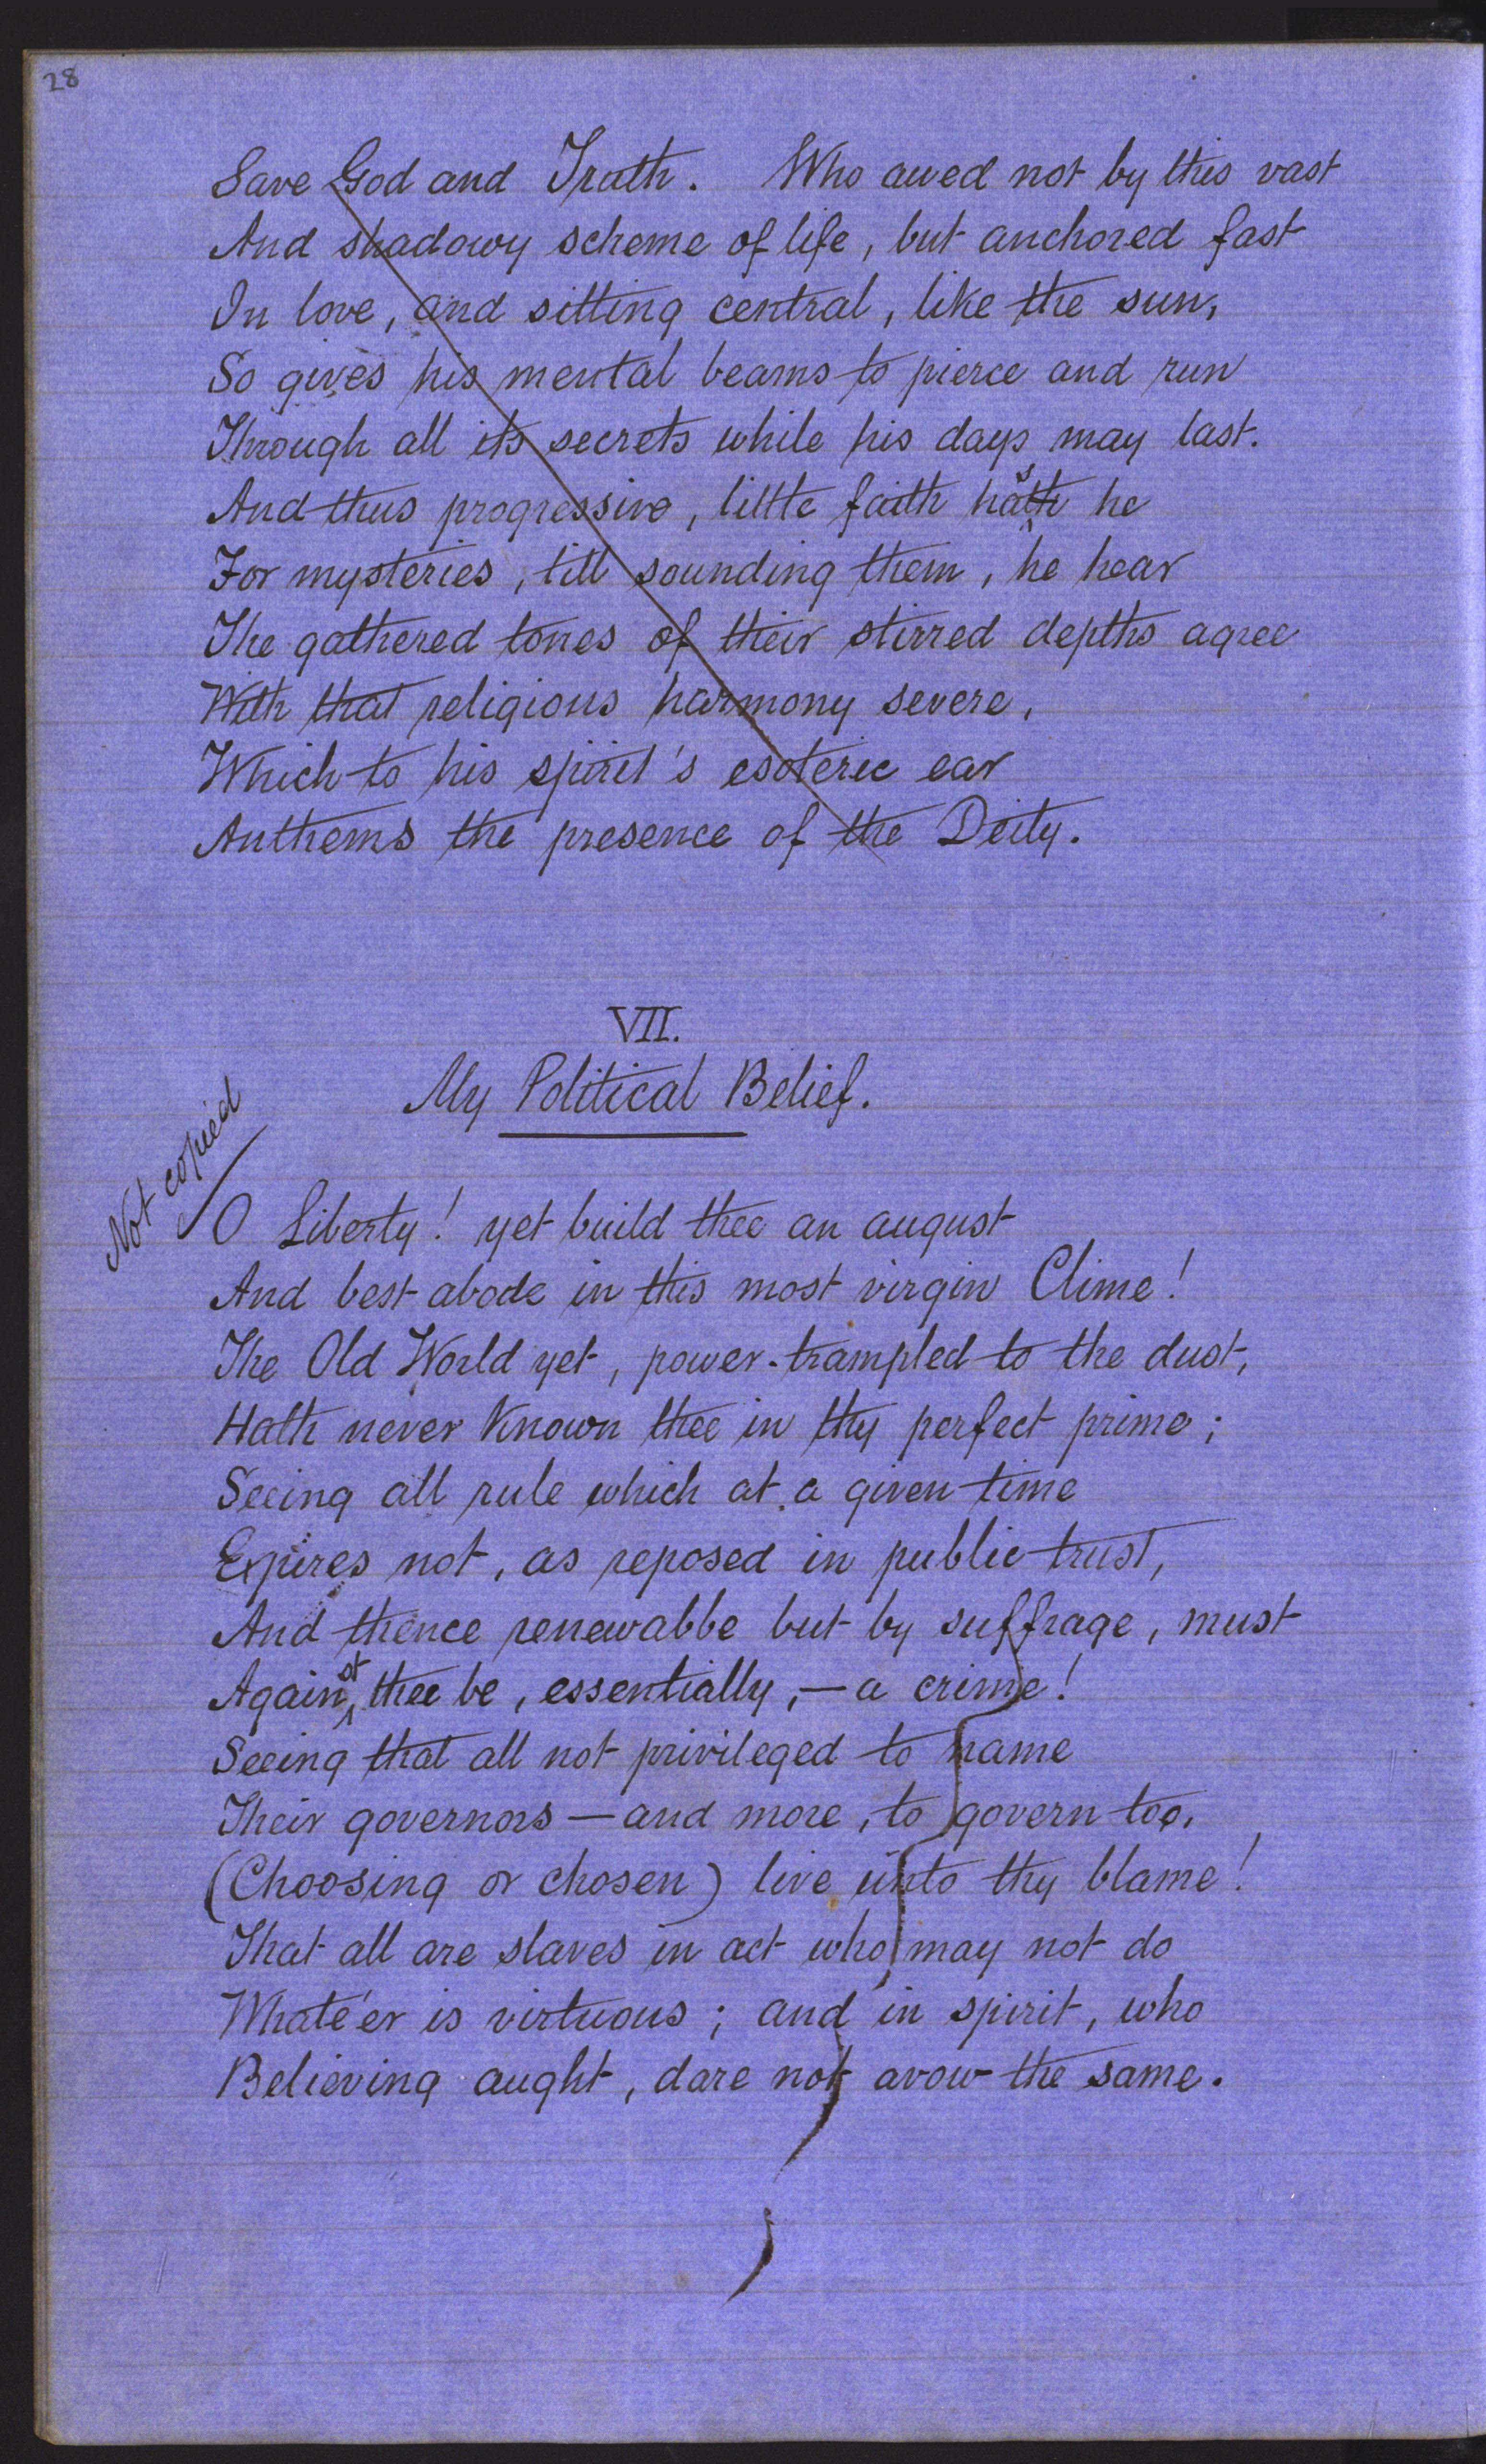 28
Save God and Truth. Who awed not by this vast
And shadowy scheme of life, but anchored fast
In love, and sitting central, like the sun,
So gives his mental beams to pierce and run
Through all its secrets while his days may last.
And thus progressive, little faith has he
For mysteries, till sounding them, he hear
The gathered tones of their stirred depths agree
With that religious harmony severe,
Which to his spirit's esoteric ear
Anthems the presence of the Deity.
VII.
My Political Belief.
Not copied
O Liberty! yet build thee an august
And best abode in this most virgin Clime!
The Old World yet, power-trampled to the dust,
Hath never known thee in thy perfect prime;
Seeing all rule which at a given time
Expires not, as reposed in public trust,
And thence renewabbe but by suffrage, must
Against thee be, essentially,—a crime!
Seeing that all not privileged to name
Their governors—and more, to govern too,
(Choosing or chosen) live unto thy blame!
That all are slaves in act who may not do
Whate'er is virtuous; and in spirit, who
Believing aught, dare not avow the same.